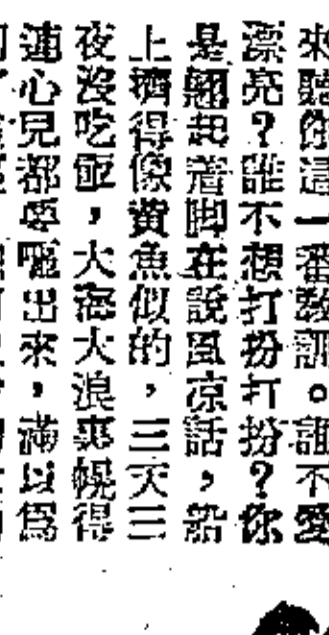 來聽你這一番教訓。誰不愛
漂亮？誰不想打扮打扮？你
是翹起着脚在說風凉話，船
上擠得像黃魚似的，三天三
夜沒吃飯，大海大浪裏幌得
連心兒都要嘔出來，滿以爲